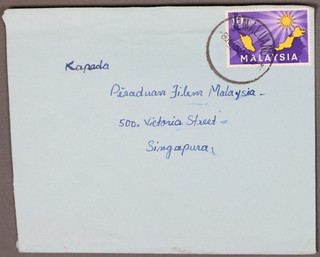 MALAYSIA
Kapada
Peraduan Filem Malaysia -
500. Victoria Street -
Singapura,